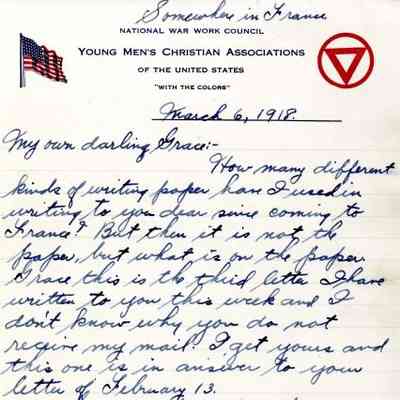 Somewhere in France
NATIONAL WAR WORK COUNCIL
YOUNG MEN'S CHRISTIAN ASSOCIATIONS
OF THE UNITED STATES
"WITH THE COLORS"
March 6, 1918.
My own darling Grace:-
How many different
kinds of writing paper have I used in
writing to you dear since coming to
France? But then it is not the
paper, but what is on the paper.
Grace this is the third letter I have
written to you this week and I
don't know why you do not
receive my mail. I get yours and
this one is in answer to your
letter of February 13.